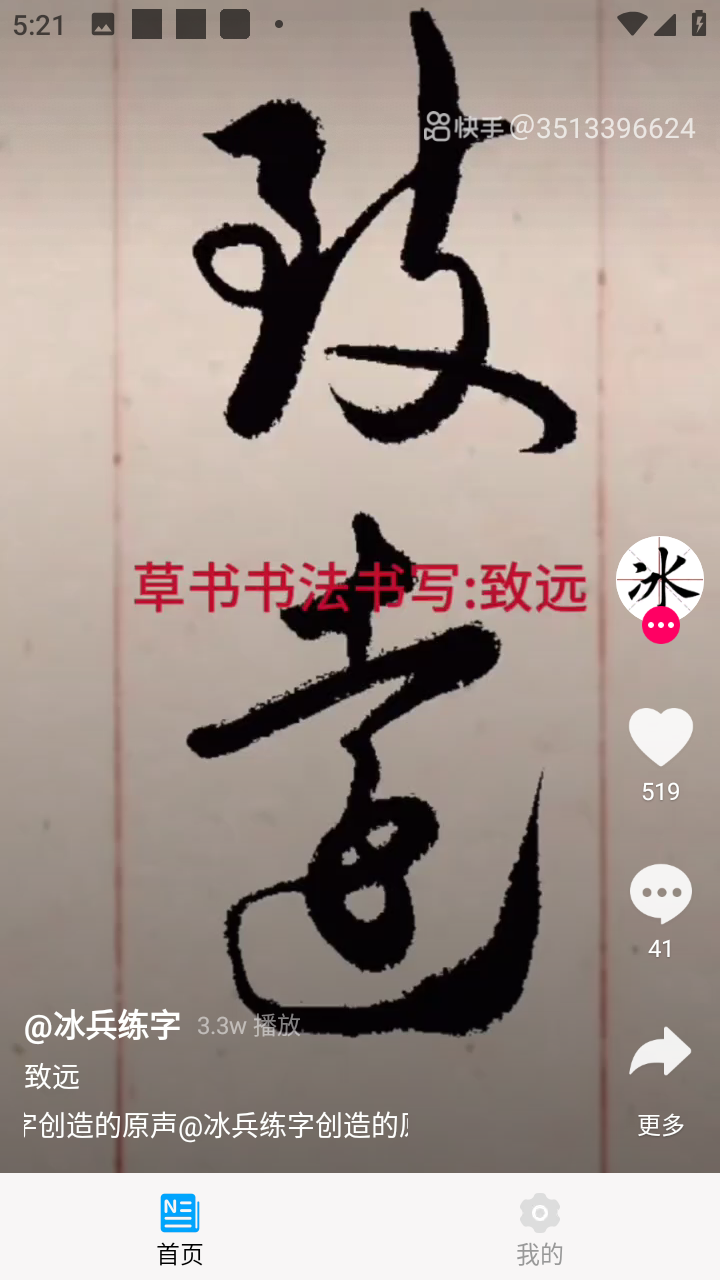 5:21
快手@3513396624
致
草书书法书写:致远
远
冰
519
41
@冰兵练字 3.3w 播放
致远
字创造的原声@冰兵练字创造的原
更多
首页
我的